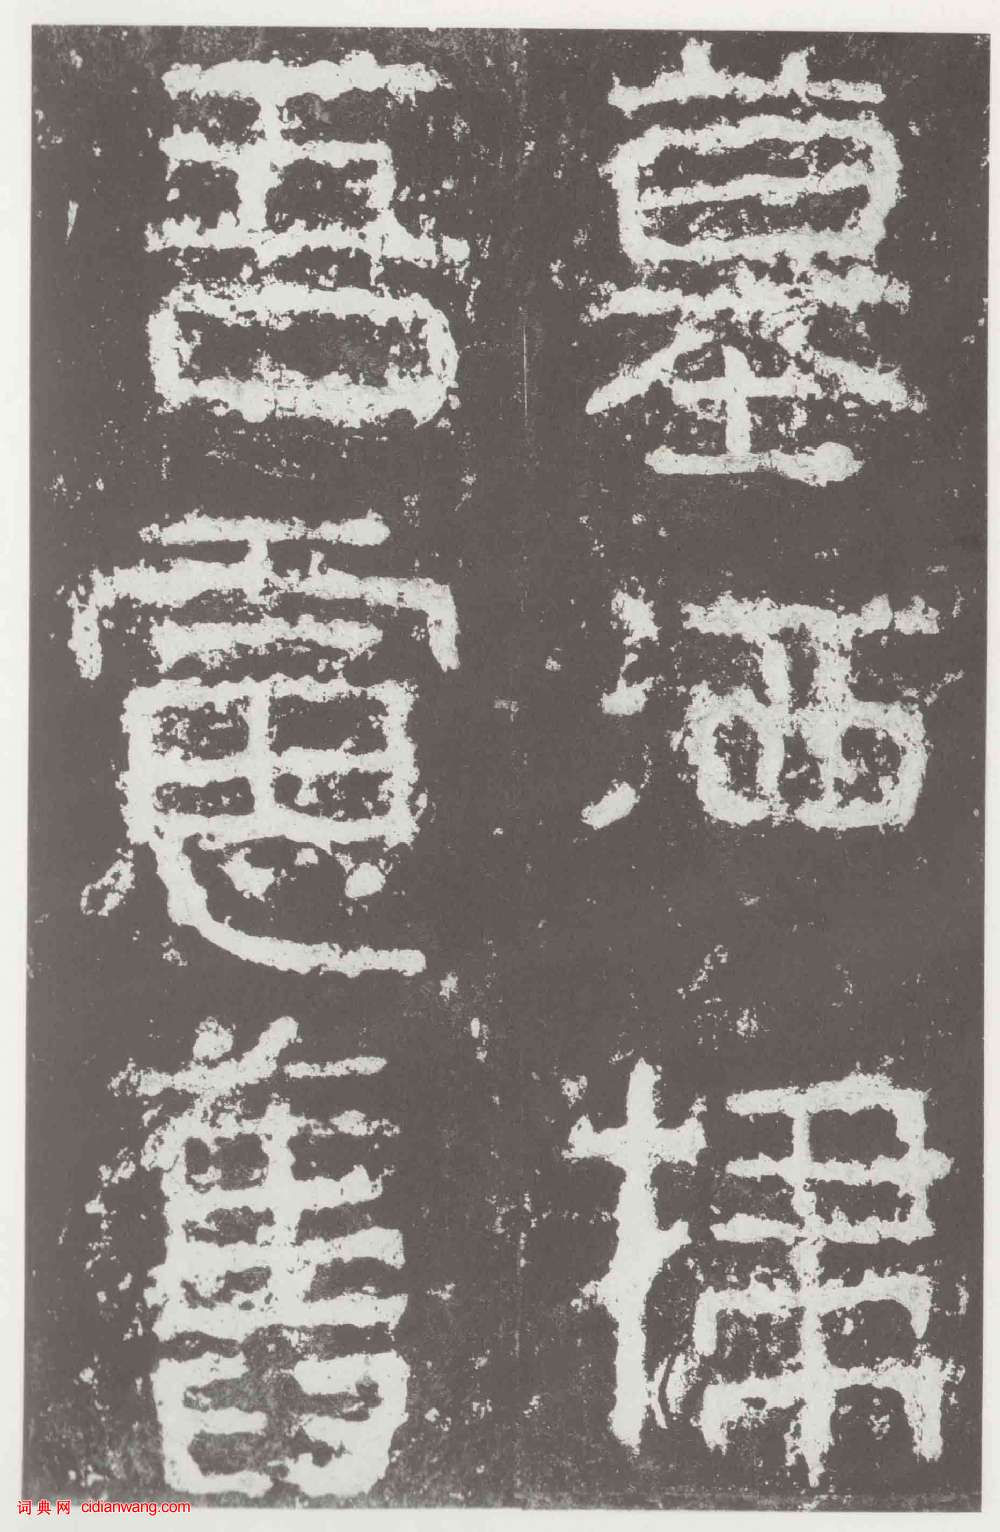 墓洒掃
吾舊
词典网 cidianwang.com